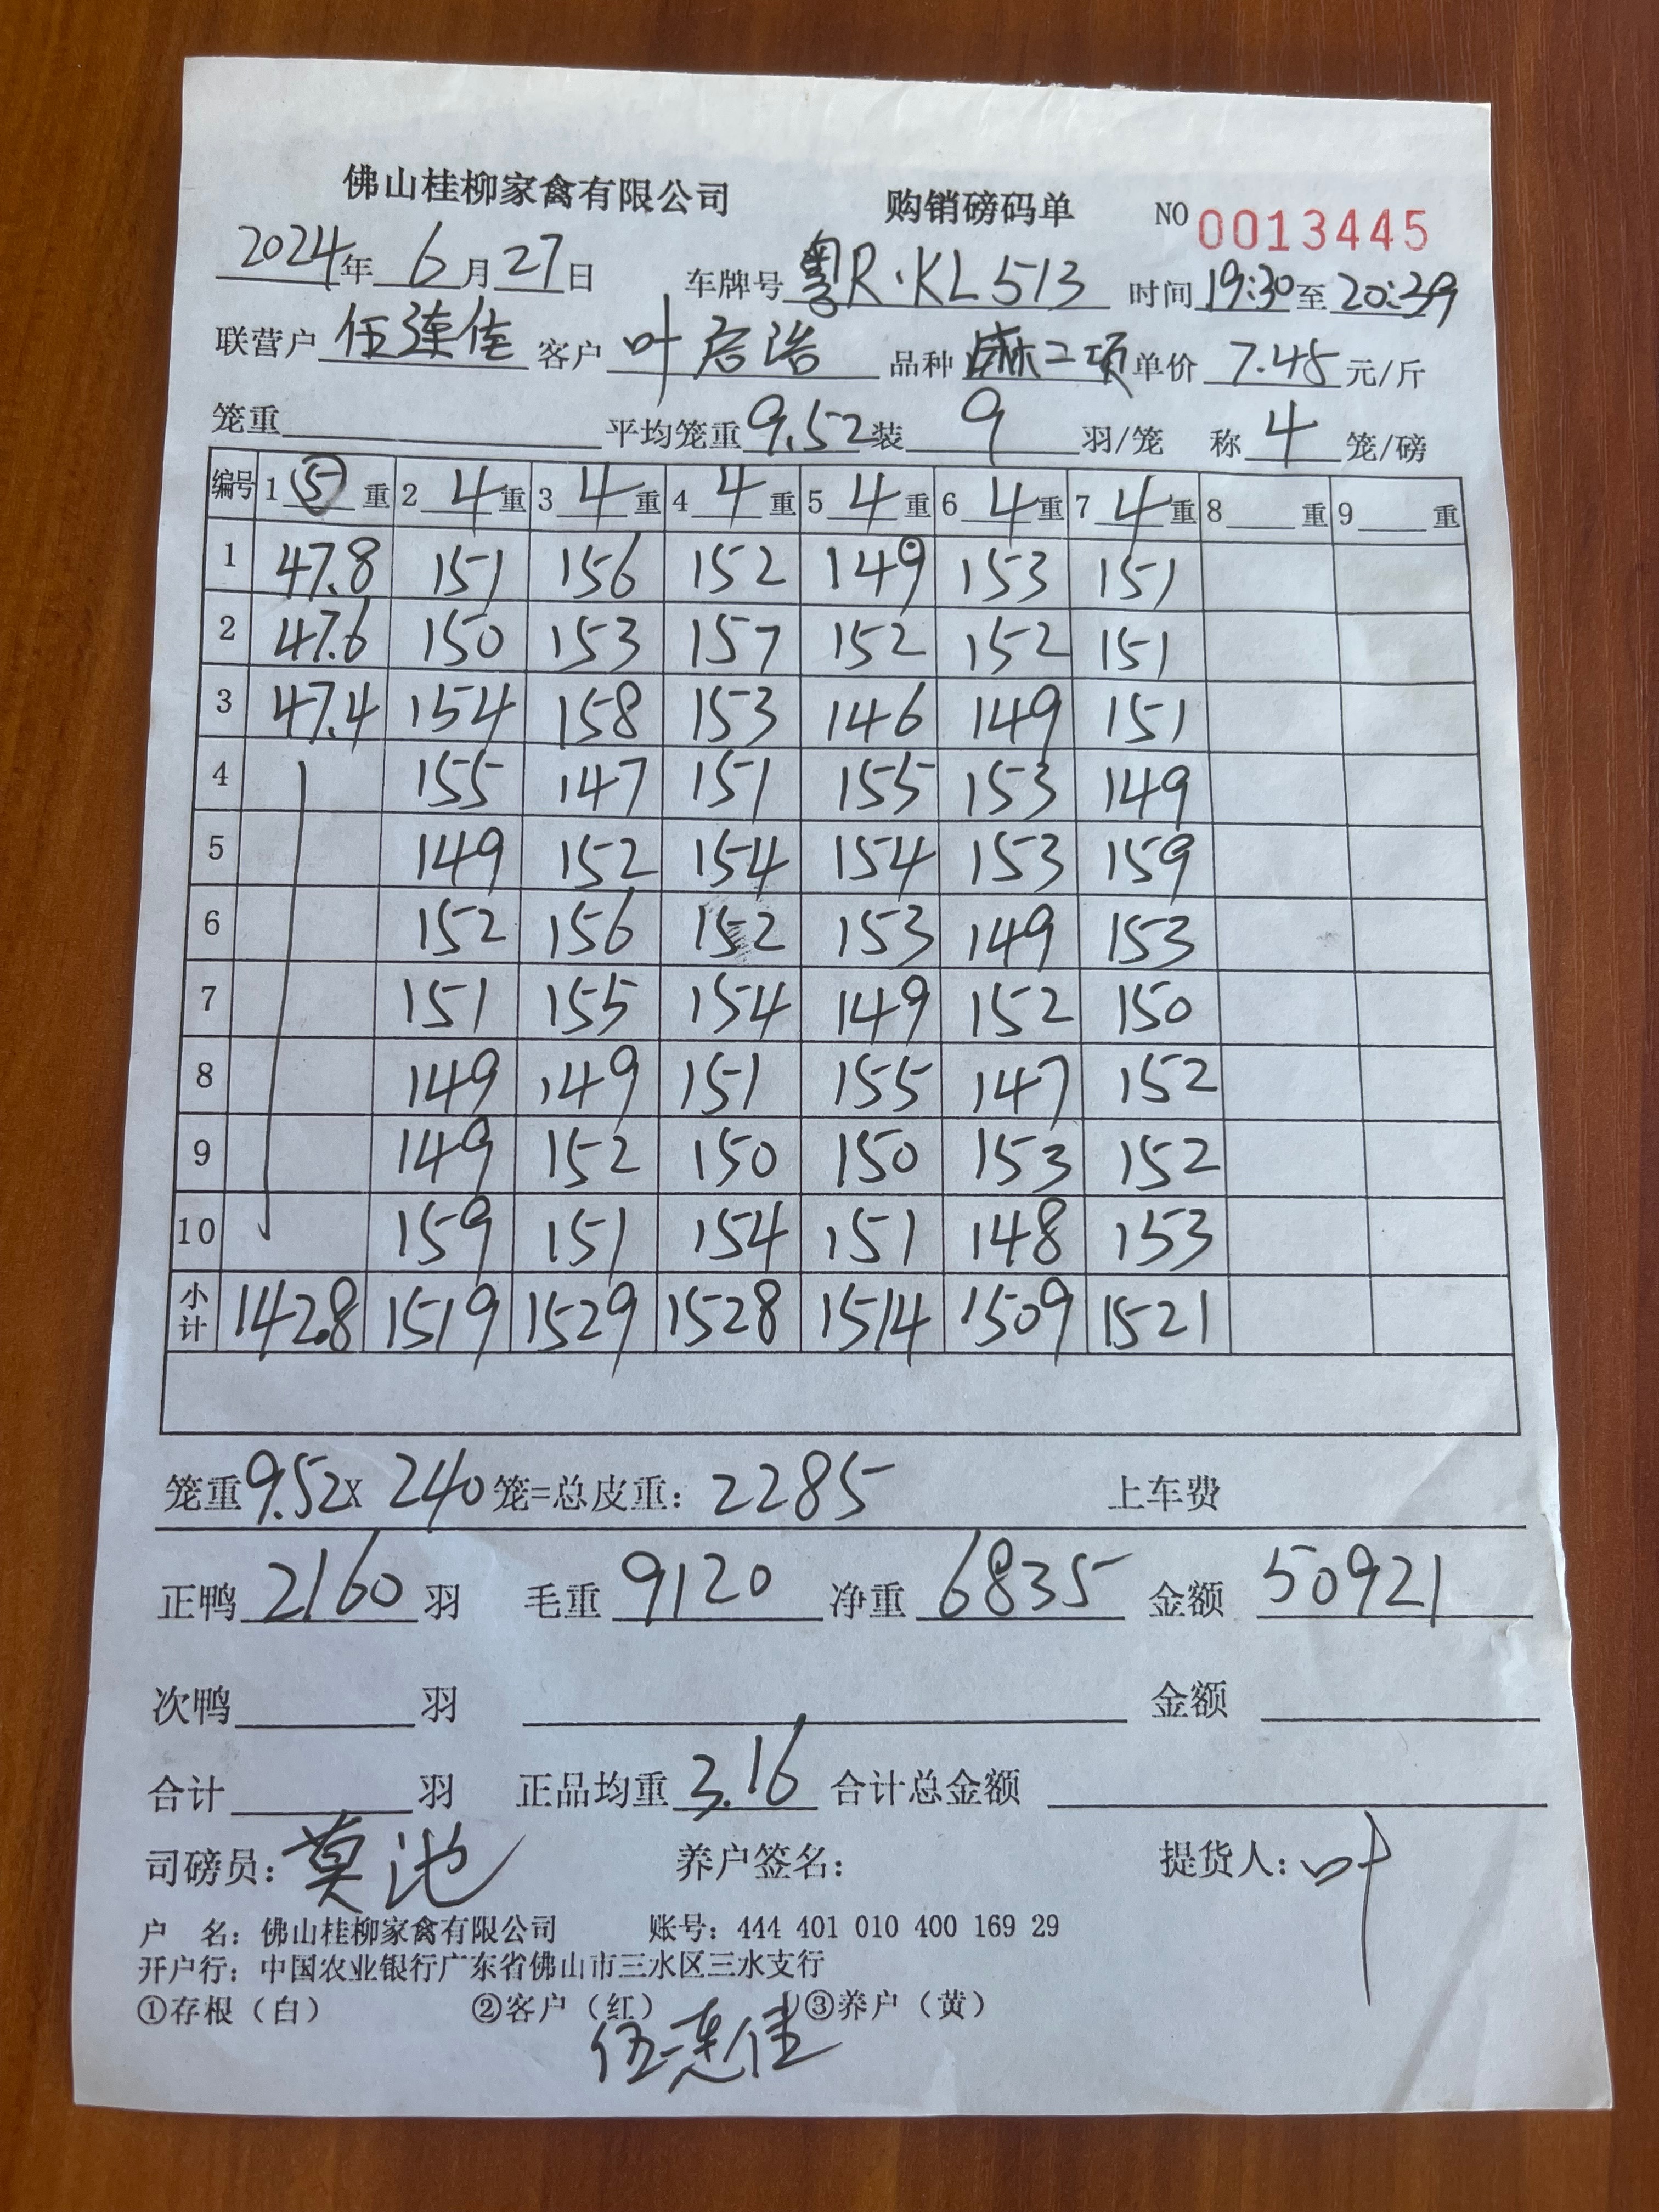 佛山桂柳家禽有限公司 购销磅码单 NO 0013445
2024年 6月27日 车牌号 粤R·KL513 时间 19:30至20:39
联营户 伍连佳 客户 叶启浩 品种 麻二项 单价 7.45 元/斤
笼重 平均笼重 9.52 装 9 羽/笼 称 4 笼/磅
编号 1 ⑤ 重 2 4 重 3 4 重 4 4 重 5 4 重 6 4 重 7 4 重 8 重 9 重
1 47.8 151 156 152 149 153 151
2 47.6 150 153 157 152 152 151
3 47.4 154 158 153 146 149 151
4 155 147 151 155 153 149
5 149 152 154 154 153 159
6 152 156 152 153 149 153
7 151 155 154 149 152 150
8 149 149 151 155 147 152
9 149 152 150 150 153 152
10 159 151 154 151 148 153
小计 142.8 1519 1529 1528 1514 1509 1521
笼重9.52X 240笼=总皮重：2285 上车费
正鸭 2160 羽 毛重 9120 净重 6835 金额 50921
次鸭 羽 金额
合计 羽 正品均重 3.16 合计总金额
司磅员：莫池 养户签名： 提货人：叶
户 名：佛山桂柳家禽有限公司 账号：444 401 010 400 169 29
开户行：中国农业银行广东省佛山市三水区三水支行
①存根（白） ②客户（红） ③养户（黄）
伍连佳